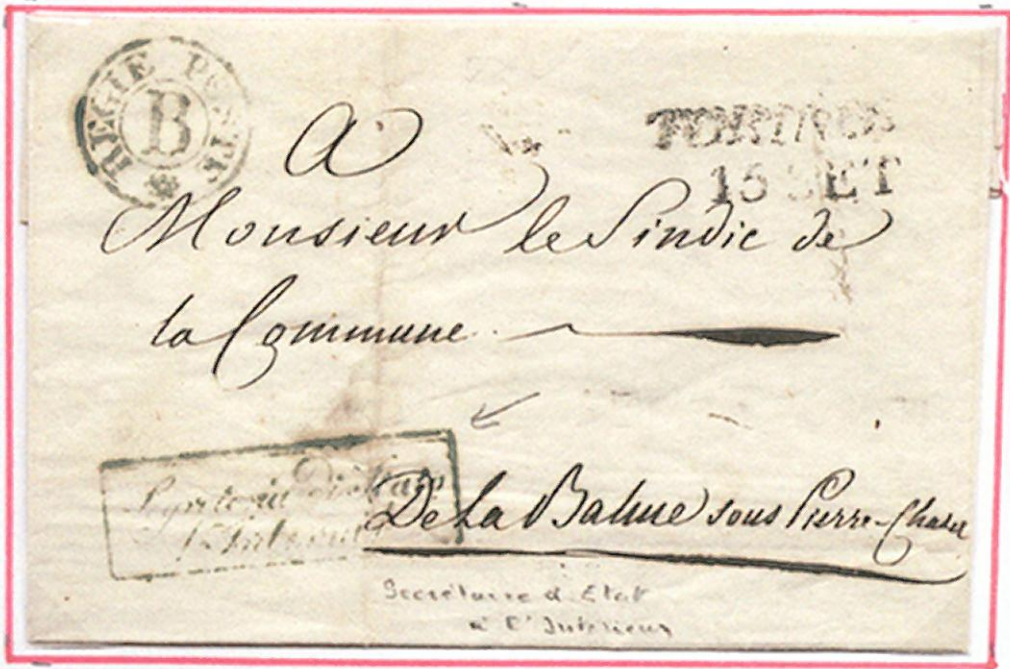 REGIE POSTE
B
TORINO
15 SET
A
Monsieur le Sindic de
la Commune
De La Balme sous Pierre-Chatel
Segreteria di Stato
Interni
Secrétaire d'Etat
à l'Intérieur